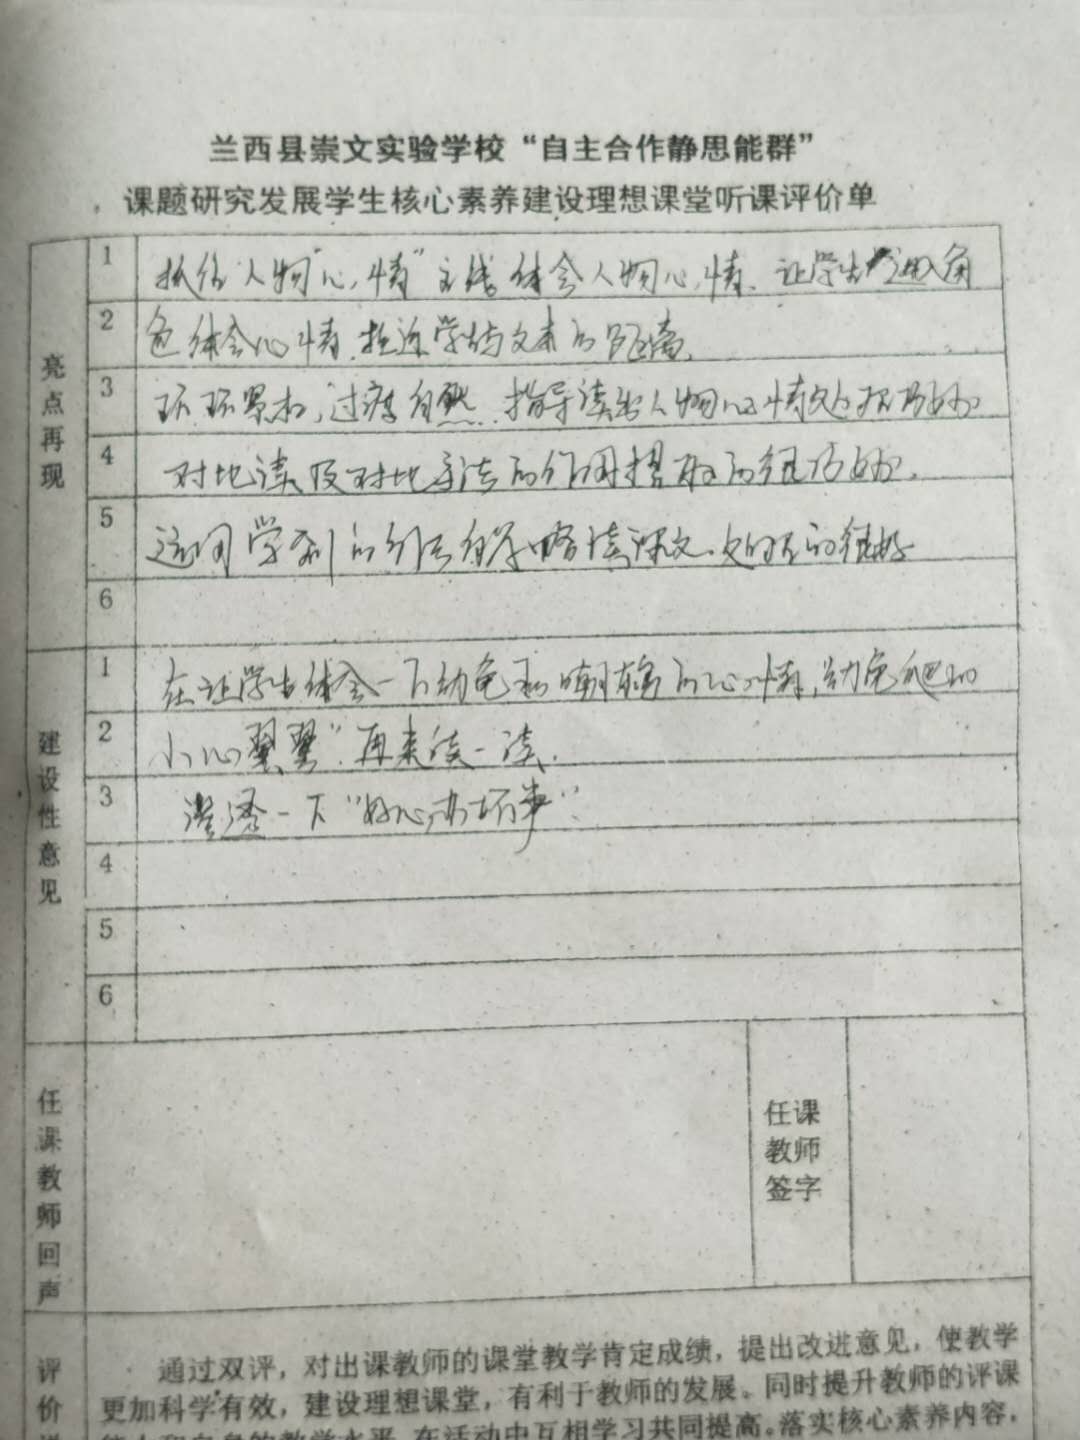 兰西县崇文实验学校“自主合作静思能群”
课题研究发展学生核心素养建设理想课堂听课评价单
亮点再现
1 抓住人物“心情”主线体会人物心情.让学生进入角
2 色体会心情.拉近学生与文本的距离.
3 环环紧扣,过渡自然.指导读出人物心情处理巧妙
4 对比读及对比导读的作用把握的很巧妙.
5 的引云自学略读课文.处理的很好
6
建设性意见
1 在让学生体会一下幼龟和嘲鸫的心情,幼龟爬的
2 小心翼翼”.再来读一读.
3 渗透一下“好心办坏事”.
4
5
6
任课教师回声
任课教师签字
评价
通过双评，对出课教师的课堂教学肯定成绩，提出改进意见，使教学
更加科学有效，建设理想课堂，有利于教师的发展。同时提升教师的评课
能力和自身的教学水平，在活动中互相学习共同提高。落实核心素养内容，